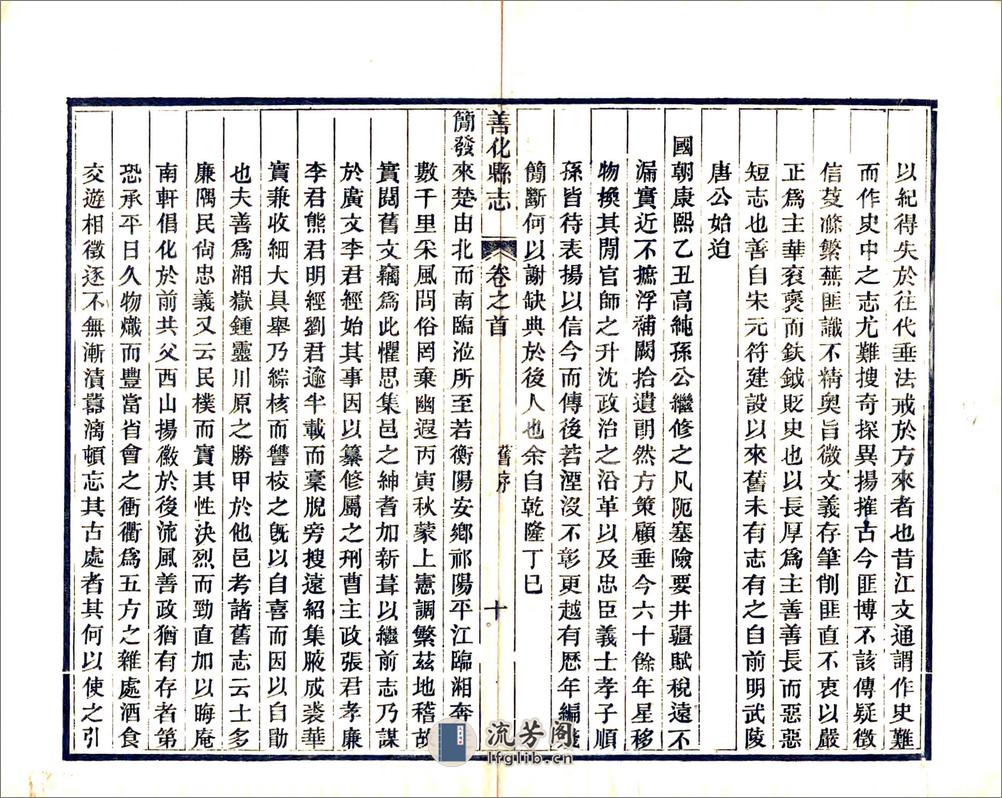 以紀得失於往代垂法戒於方來者也昔江文通謂作史難
而作史中之志尤難搜奇探異揚搉古今匪博不該傳疑徵
信芟滌繁蕪匪識不精奧旨微文義存筆削匪直不衷以嚴
正爲主華衮褒而鈇鉞貶史也以長厚爲主善善長而惡惡
短志也善自宋元符建設以來舊未有志有之自前明武陵
唐公始迨
國朝康熙乙丑高純孫公繼修之凡阨塞險要井疆賦稅遠不
漏實近不摭浮補闕拾遺朗然方策顧垂今六十餘年星移
物換其閒官師之升沈政治之沿革以及忠臣義士孝子順
孫皆待表揚以信今而傳後若湮沒不彰更越有歷年編殘
簡斷何以謝缺典於後人也余自乾隆丁巳
善化縣志
卷之首
舊序
十
簡發來楚由北而南臨涖所至若衡陽安鄉祁陽平江臨湘奔
數千里采風問俗罔棄幽遐丙寅秋蒙上憲調繁茲地稽故
實閱舊文竊爲此懼思集邑之紳耆加新葺以繼前志乃謀
於廣文李君經始其事因以纂修屬之刑曹主政張君孝廉
李君熊君明經劉君逾半載而稾脫旁搜遠紹集腋成裘華
實兼收細大具舉乃綜核而讐校之旣以自喜而因以自勖
也夫善爲湘嶽鍾靈川原之勝甲於他邑考諸舊志云士多
廉隅民尙忠義又云民樸而實其性決烈而勁直加以晦庵
南軒倡化於前共父西山揚徽於後流風善政猶有存者第
恐承平日久物熾而豐當省會之衝衢爲五方之雜處酒食
交遊相徵逐不無漸漬囂漓頓忘其古處者其何以使之引
流芳阁
lfglib.cn